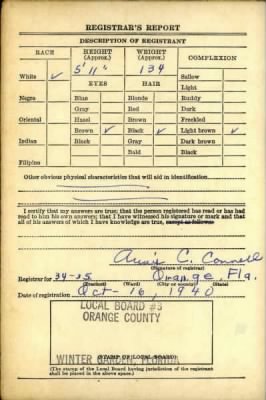 REGISTRAR'S REPORT
DESCRIPTION OF REGISTRANT
RACE HEIGHT (Approx.) WEIGHT (Approx.) COMPLEXION
5' 11" 134
White ✓ Sallow
EYES HAIR Light
Negro Blue Blonde Ruddy
Gray Red Dark
Oriental Hazel Brown Freckled
Brown ✓ Black ✓ Light brown ✓
Indian Black Gray Dark brown
Bald Black
Filipino
Other obvious physical characteristics that will aid in identification
I certify that my answers are true; that the person registered has read or has had
read to him his own answers; that I have witnessed his signature or mark and that
all of his answers of which I have knowledge are true, except as follows:
C. Connell
(Signature of registrar)
Registrar for 34-35 Orange, Fla.
(Precinct) (Ward) (City or county) (State)
Date of registration Oct-16, 1940
LOCAL BOARD #3
ORANGE COUNTY
WINTER GARDEN, FLORIDA
(STAMP OF LOCAL BOARD)
(The stamp of the Local Board having jurisdiction of the registrant
shall be placed in the above space.)